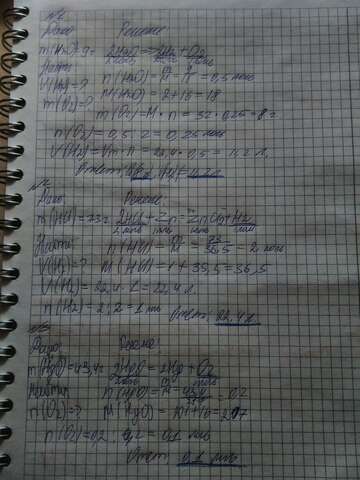 №1
Дано: Решение
m(H₂O)=9г 2H₂O = 2H₂ + O₂
Найти: n(H₂O) = m/M = 9/18 = 0,5 моль
V(H₂)-? M(H₂O) = 2+16 = 18
m(O₂)=? m(O₂) = M · n = 32 · 0,25 = 8 г.
n(O₂) = 0,5 : 2 = 0,25 моль
V(H₂) = Vm · n = 22,4 · 0,5 = 11,2 л.
Ответ:
№2
Дано: Решение:
m(HCl)=73г. 2HCl + Zn = ZnCl₂ + H₂
2 моль 1 моль 1 моль 1 моль
Найти: n(HCl) = m/M = 73/36,5 = 2 моль
V(H₂)=? M(HCl) = 1 + 35,5 = 36,5
V(H₂) = 22,4 · 1 = 22,4 л.
n(H₂) = 2 : 2 = 1 моль Ответ: 22,4 л
№3
Дано: Решение:
m(HgO)=43,4г 2HgO = 2Hg + O₂
Найти n(HgO) = m/M = = 0,2
n(O₂)=? M(HgO) = 201+16 = 217
n(O₂) = 0,2 : 2 = 0,1 моль
Ответ: 0,1 моль